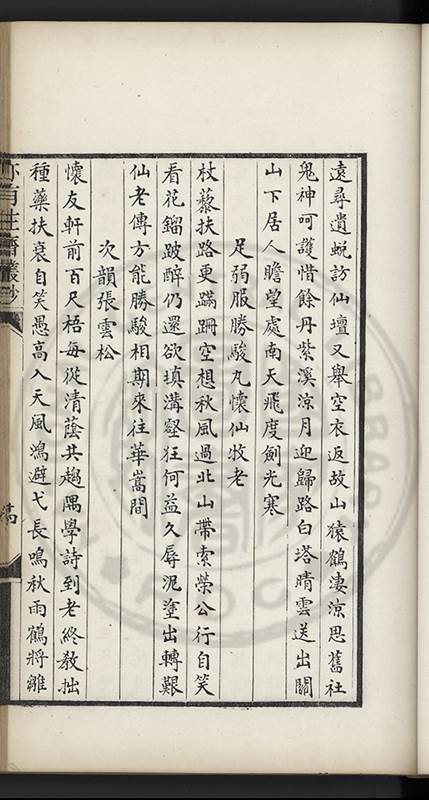 遠尋遺蛻訪仙壇又舉空衣返故山猿鶴淒涼思舊社
鬼神呵護惜餘丹紫溪涼月迎歸路白塔晴雲送出關
山下居人瞻望處南天飛度劍光寒
足弱服勝駿丸懷仙牧老
杖藜扶路更蹣跚空想秋風過北山帶索榮公行自笑
看花鎦跛醉仍還欲填溝壑狂何益久辱泥塗出轉艱
仙老傳方能勝駿相期來往華嵩間
次韻張雲松
懷友軒前百尺梧每從清蔭共趨隅學詩到老終教拙
種藥扶衰自笑愚高入天風鴻避弋長鳴秋雨鶴將雛
亦有生齋叢鈔